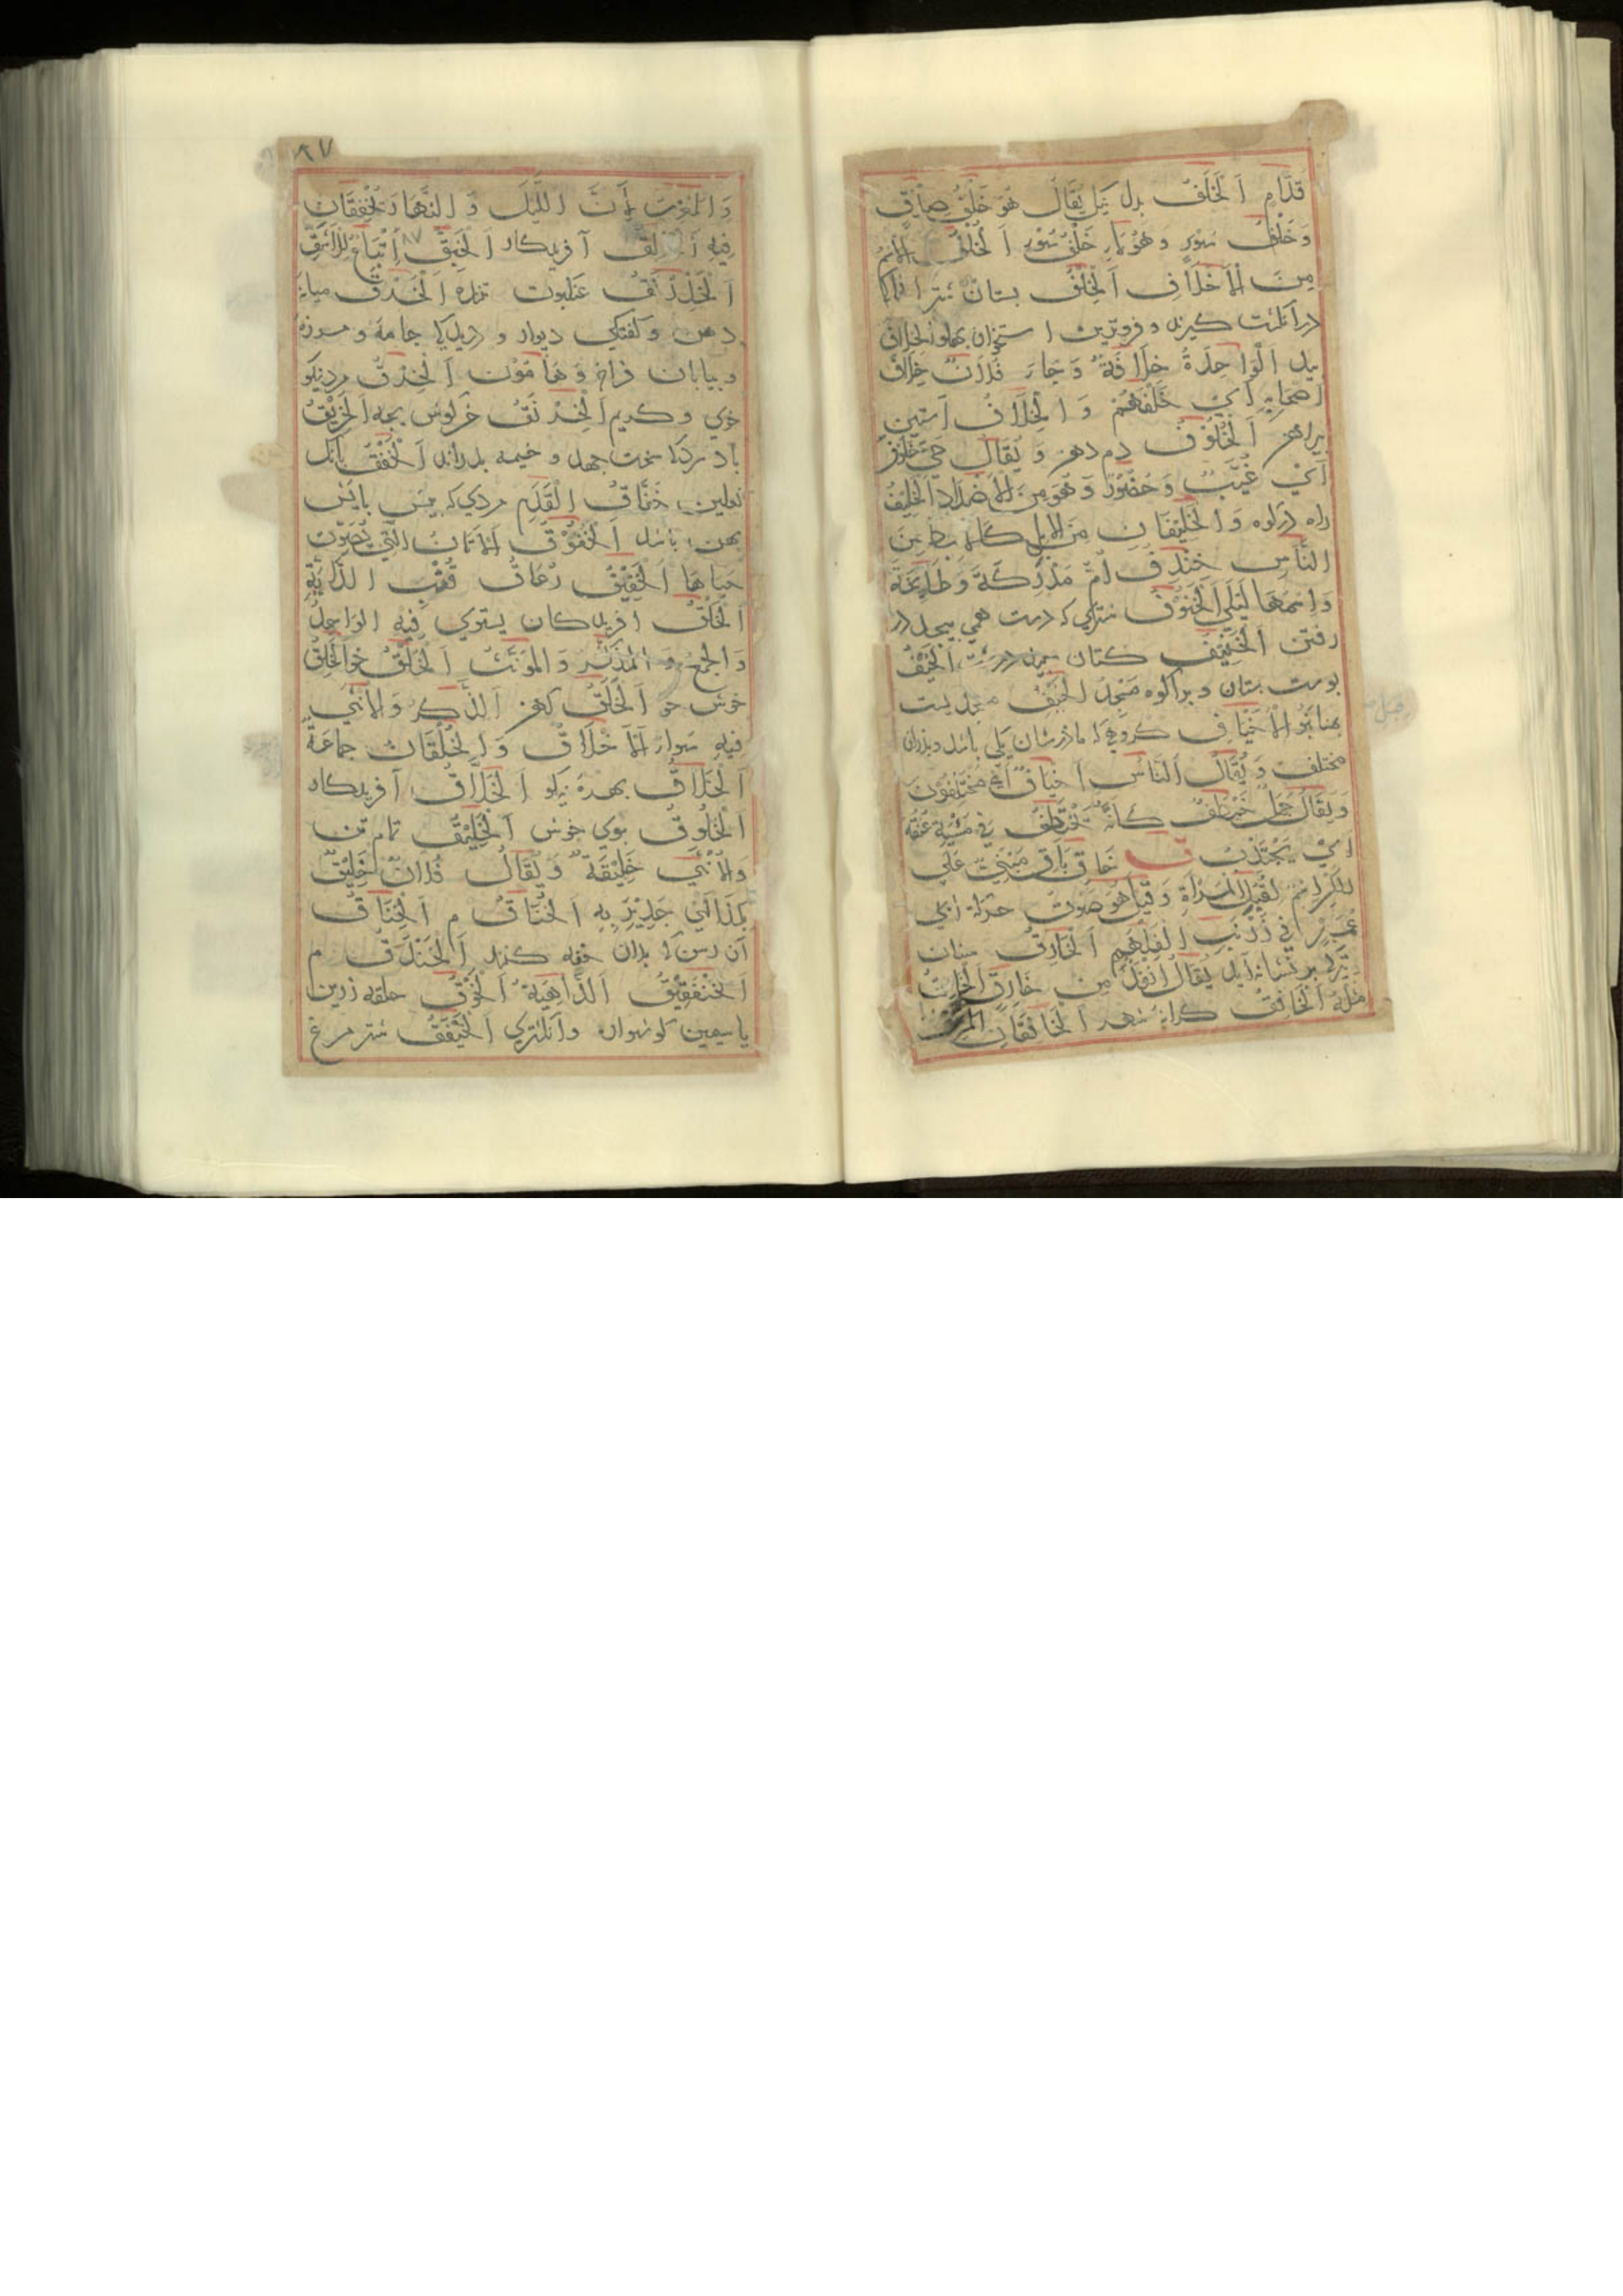 قُدَّام اَلْخَلَفُ بدل نیک یُقَالُ هُوَ خَلَفُ صِدْقٍ
وَخَلْفُ سَوْءٍ وَهُوَ خَلْفُ سَوْءٍ اَلْخُلْفُ الاسم
مِنَ الْاَخْلَافِ اَلْخِلْفُ بستان شتر
در انکشت کیرند و فروترین استخوان پهلو الخلاف
بید اَلْوَاحِدَةُ خِلَافَةٌ وَجَاءَ فُلَانٌ خِلَافَ
اَصْحَابِهِ اَيْ خَلْفَهُمْ وَالْخِلَافُ آستین
پیراهن اَلْخُلُوْفُ دم دهن وَيُقَالُ حَيٌّ خُلُوْفٌ
اَيْ غُيَّبٌ وَحُضُوْرٌ وَهُوَ مِنَ الْاَضْدَادِ اَلْخَلِيْفُ
راه در کوه وَالْخَلِيْفَانِ مِنَ الْاِبِلِ كَالْاِبْطَيْنِ مِنَ
النَّاسِ خِنْدِفُ اُمُّ مُدْرِكَةَ وَطَابِخَةَ
وَاسْمُهَا لَيْلَى اَلْخَنُوْفُ شتری که دست همی پیچد در
رفتن اَلْخَنِيْفُ کتان اَلْخَيْفُ
پوست بستان و برا کوه مَسْجِدُ الْخَيْفِ مسجدیست
بمنا اَلْاَخْيَافُ کروهی که مادرشان یکی باشد و پدران
مختلف وَيُقَالُ اَلنَّاسُ اَخْيَافٌ اَيْ مُخْتَلِفُوْنَ
وَيُقَالُ جَمَلٌ كَاَنَّهُ فِي مَشْيِهِ عُنُقَهُ
اَيْ يَجْتَذِبُ ق خَاقِ بَاقِ مَبْنِيٌّ عَلَى
الْكَسْرِ اِسْمٌ لِقُبُلِ الْمَرْاَةِ وَقِيْلَ هُوَ صَوْتُ حركة ابي
عُمَيْرٍ فِي زَرْنَبِ الْفَلْهَمِ اَلْخَازِقُ سنان
تیر که بر نشانه آید يُقَالُ اَنْفَذُ مِنْ خَازِقٍ اَلْخَاسِقُ
مِثْلُهُ اَلْخَافِقُ کرانه شهر اَلْخَافِقَانِ الْمَشْرِقُ
۸۷
وَالْمَغْرِبُ لِاَنَّ اللَّيْلَ وَالنَّهَارَ يَخْفِقَانِ
فِيْهِ اَلْخَالِقُ آفریدکار اَلْخَبِقُّ اِتْبَاعٌ لِلْاَشَقِّ
اَلْخَدَرْنَقُ عنکبوت نر اَلْخَرْقُ میانه
دهن و کفتکی دیوار و دریدکی جامه و موزه
و بیابان فراخ وَهَا مُؤَنَّث اَلْخِرْقُ مرد نیکو
خوی و کریم اَلْخِرْنِقُ خرکوش بچه اَلْخَرِيْقُ
باد سرد که سخت جهد و خیمه بدراند اَلْخَفْقُ بانک
نعلین خَفَّاقُ الْقَدَمِ مردی که پیش پایش
پهن باشد اَلْخَفُوْقُ اَلْاَتَانُ الَّتِي يُصَوِّتُ
حَيَاهَا اَلْخَفِيْقُ رُعَاقُ قُنْبِ الدَّابَّةِ
اَلْخَلْقُ آفریدکان يستوي فِيْهِ الْوَاحِدُ
وَالْجَمْعُ وَالْمُذَكَّرُ وَالْمُؤَنَّثُ اَلْخُلُقُ خو اَلْخَلِقُ
خوش خو اَلْخَلَقُ کهن اَلذَّكَرُ وَالْاُنْثَى
فِيْهِ سَوَاءٌ اَلْاَخْلَاقُ وَالْخُلْقَانُ جَمَاعَةٌ
اَلْخَلَاقُ بهره نیکو اَلْخَلَّاقُ آفریدکار
اَلْخَلُوْقُ بوی خوش اَلْخَلِيْقُ تمام تن
وَالْاُنْثَى خَلِيْقَةٌ وَيُقَالُ فُلَانٌ خَلِيْقٌ
بِكَذَا اَيْ جَدِيْرٌ بِهِ اَلْخُنَاقُ م اَلْخِنَاقُ
آن رسن که بدان خفه کنند اَلْخَنْدَقُ م
اَلْخَنْفَقِيْقُ اَلدَّاهِيَةُ اَلْخَوْقُ حلقه زرین
یا سیمین کوشواره و انکشتری اَلْخَيْفَقُ شتر مرغ